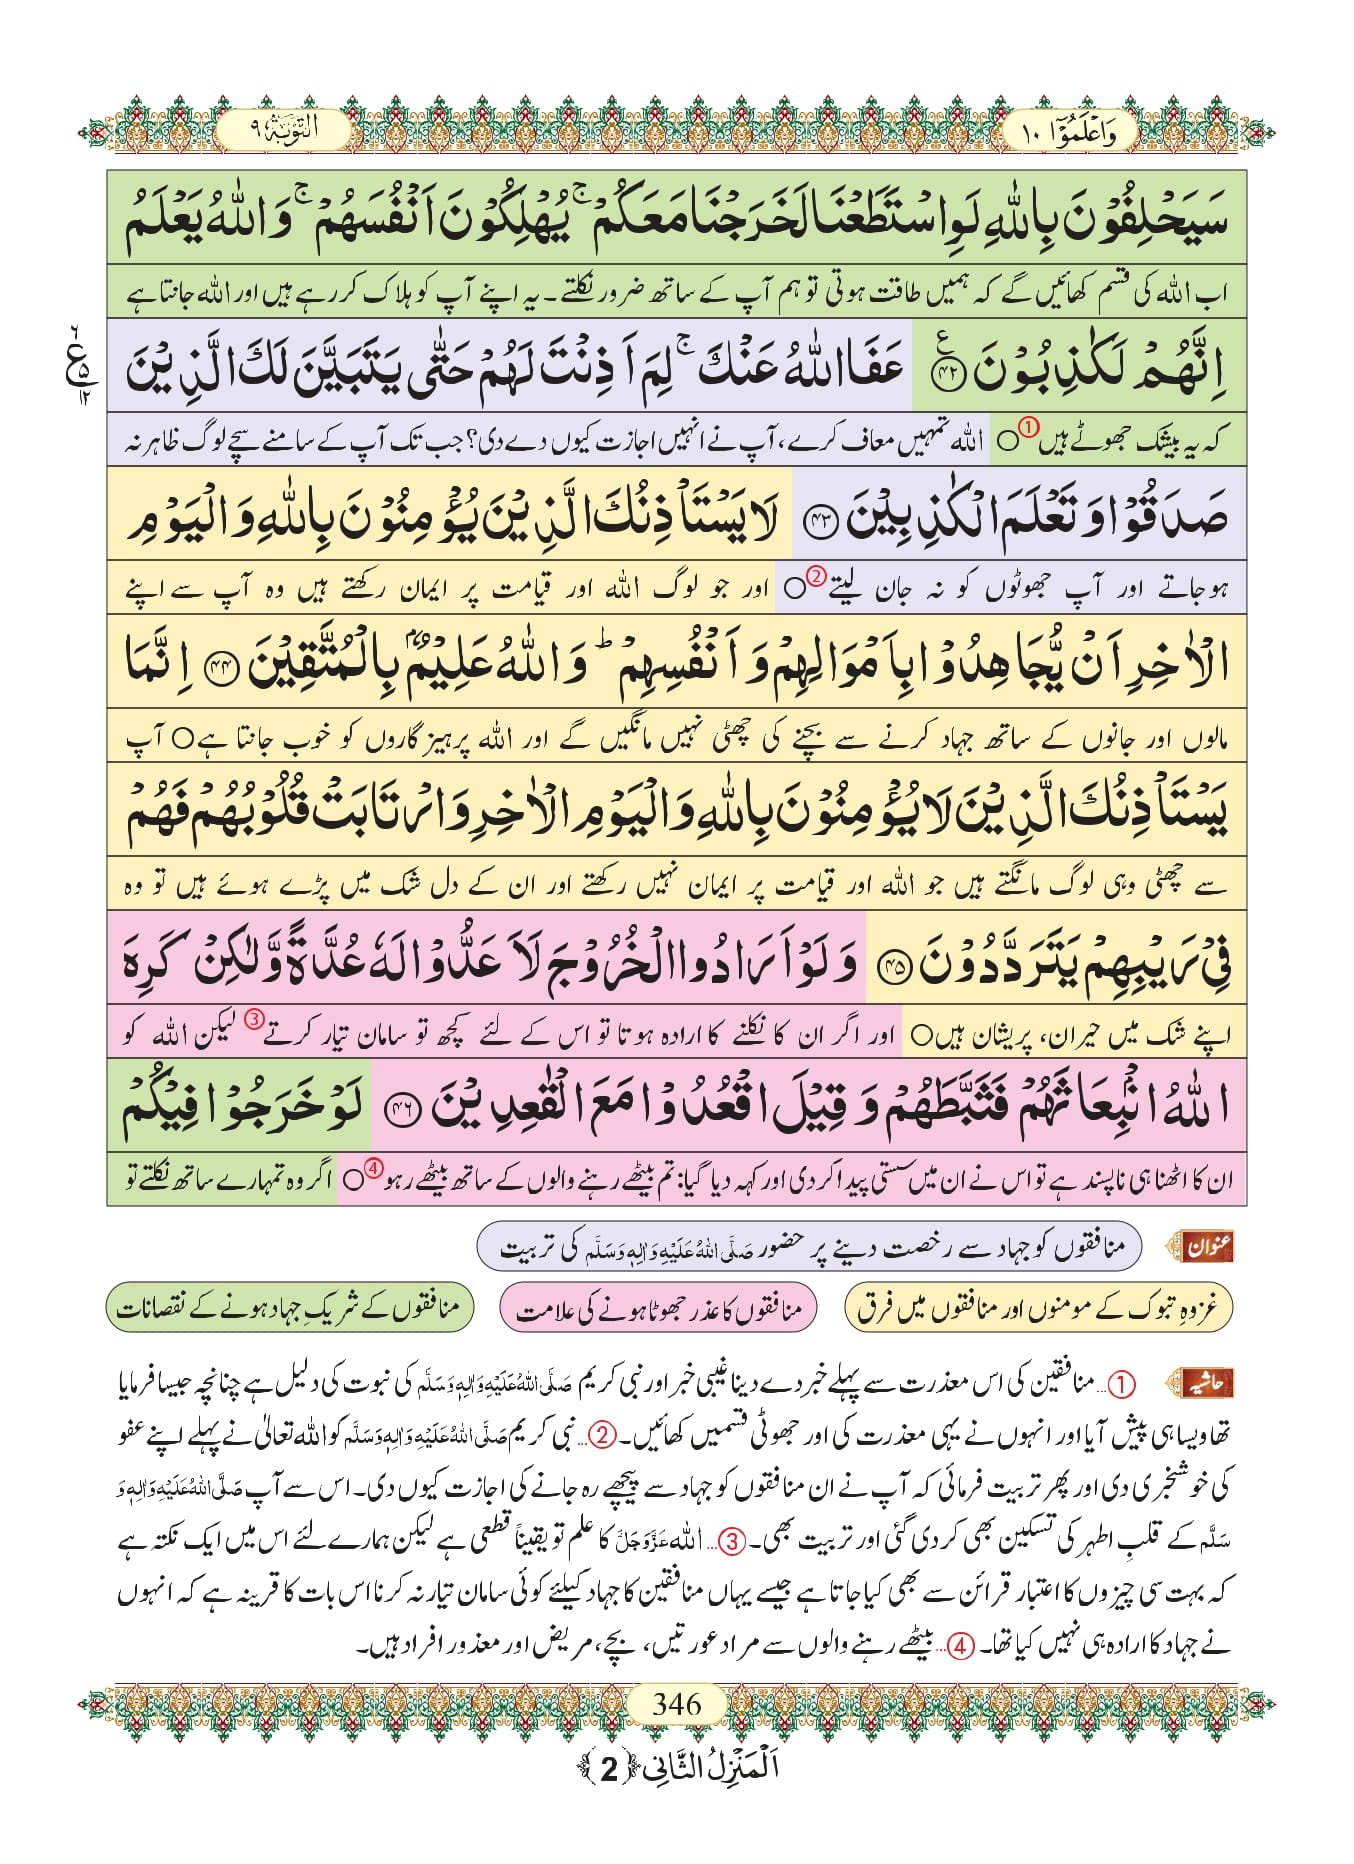 وَاعْلَمُوْۤا ١٠
التَّوْبَة ٩
سَيَحْلِفُوْنَ بِاللّٰهِ لَوِ اسْتَطَعْنَا لَخَرَجْنَا مَعَكُمْ ۚ يُهْلِكُوْنَ اَنْفُسَهُمْ ۚ وَ اللّٰهُ يَعْلَمُ
اب اللہ کی قسم کھائیں گے کہ ہمیں طاقت ہوتی تو ہم آپ کے ساتھ ضرور نکلتے۔ یہ اپنے آپ کو ہلاک کر رہے ہیں اور اللہ جانتا ہے
اِنَّهُمْ لَكٰذِبُوْنَ ﴿۴۲﴾ ع عَفَا اللّٰهُ عَنْكَ ۚ لِمَ اَذِنْتَ لَهُمْ حَتّٰى يَتَبَيَّنَ لَكَ الَّذِيْنَ
۶ ع ۵ ۱۲
کہ یہ بیشک جھوٹے ہیں① ○ اللہ تمہیں معاف کرے، آپ نے انہیں اجازت کیوں دے دی؟ جب تک آپ کے سامنے سچے لوگ ظاہر نہ
صَدَقُوْا وَ تَعْلَمَ الْكٰذِبِيْنَ ﴿۴۳﴾ لَا يَسْتَاْذِنُكَ الَّذِيْنَ يُؤْمِنُوْنَ بِاللّٰهِ وَ الْيَوْمِ
ہوجاتے اور آپ جھوٹوں کو نہ جان لیتے② ○ اور جو لوگ اللہ اور قیامت پر ایمان رکھتے ہیں وہ آپ سے اپنے
الْاٰخِرِ اَنْ يُّجَاهِدُوْا بِاَمْوَالِهِمْ وَ اَنْفُسِهِمْ ؕ وَ اللّٰهُ عَلِيْمٌۢ بِالْمُتَّقِيْنَ ﴿۴۴﴾ اِنَّمَا
مالوں اور جانوں کے ساتھ جہاد کرنے سے بچنے کی چھٹی نہیں مانگیں گے اور اللہ پرہیزگاروں کو خوب جانتا ہے ○ آپ
يَسْتَاْذِنُكَ الَّذِيْنَ لَا يُؤْمِنُوْنَ بِاللّٰهِ وَ الْيَوْمِ الْاٰخِرِ وَ ارْتَابَتْ قُلُوْبُهُمْ فَهُمْ
سے چھٹی وہی لوگ مانگتے ہیں جو اللہ اور قیامت پر ایمان نہیں رکھتے اور ان کے دل شک میں پڑے ہوئے ہیں تو وہ
فِيْ رَيْبِهِمْ يَتَرَدَّدُوْنَ ﴿۴۵﴾ وَ لَوْ اَرَادُوا الْخُرُوْجَ لَاَعَدُّوْا لَهٗ عُدَّةً وَّ لٰكِنْ كَرِهَ
اپنے شک میں حیران، پریشان ہیں ○ اور اگر ان کا نکلنے کا ارادہ ہوتا تو اس کے لئے کچھ تو سامان تیار کرتے③ لیکن اللہ کو
اللّٰهُ انْۢبِعَاثَهُمْ فَثَبَّطَهُمْ وَ قِيْلَ اقْعُدُوْا مَعَ الْقٰعِدِيْنَ ﴿۴۶﴾ لَوْ خَرَجُوْا فِيْكُمْ
ان کا اٹھنا ہی ناپسند ہے تو اس نے ان میں سستی پیدا کر دی اور کہہ دیا گیا: تم بیٹھے رہنے والوں کے ساتھ بیٹھے رہو④ ○ اگر وہ تمہارے ساتھ نکلتے تو
عنوان منافقوں کو جہاد سے رخصت دینے پر حضور صَلَّی اللہُ عَلَیْہِ وَاٰلِہٖ وَسَلَّم کی تربیت
غزوہِ تبوک کے مومنوں اور منافقوں میں فرق منافقوں کا عذر جھوٹا ہونے کی علامت منافقوں کے شریکِ جہاد ہونے کے نقصانات
حاشیہ ①...منافقین کی اس معذرت سے پہلے خبر دے دینا غیبی خبر اور نبی کریم صَلَّی اللہُ عَلَیْہِ وَاٰلِہٖ وَسَلَّم کی نبوت کی دلیل ہے چنانچہ جیسا فرمایا
تھا ویسا ہی پیش آیا اور انہوں نے یہی معذرت کی اور جھوٹی قسمیں کھائیں۔ ②...نبی کریم صَلَّی اللہُ عَلَیْہِ وَاٰلِہٖ وَسَلَّم کو اللہ تعالیٰ نے پہلے اپنے عفو
کی خوشخبری دی اور پھر تربیت فرمائی کہ آپ نے ان منافقوں کو جہاد سے پیچھے رہ جانے کی اجازت کیوں دی۔ اس سے آپ صَلَّی اللہُ عَلَیْہِ وَاٰلِہٖ وَ
سَلَّم کے قلبِ اطہر کی تسکین بھی کر دی گئی اور تربیت بھی۔ ③...اللہ عَزَّوَجَلَّ کا علم تو یقیناً قطعی ہے لیکن ہمارے لئے اس میں ایک نکتہ ہے
کہ بہت سی چیزوں کا اعتبار قرائن سے بھی کیا جاتا ہے جیسے یہاں منافقین کا جہاد کیلئے کوئی سامان تیار نہ کرنا اس بات کا قرینہ ہے کہ انہوں
نے جہاد کا ارادہ ہی نہیں کیا تھا۔ ④...بیٹھے رہنے والوں سے مراد عورتیں، بچے، مریض اور معذور افراد ہیں۔
346
اَلْمَنْزِلُ الثَّانِی ﴿2﴾